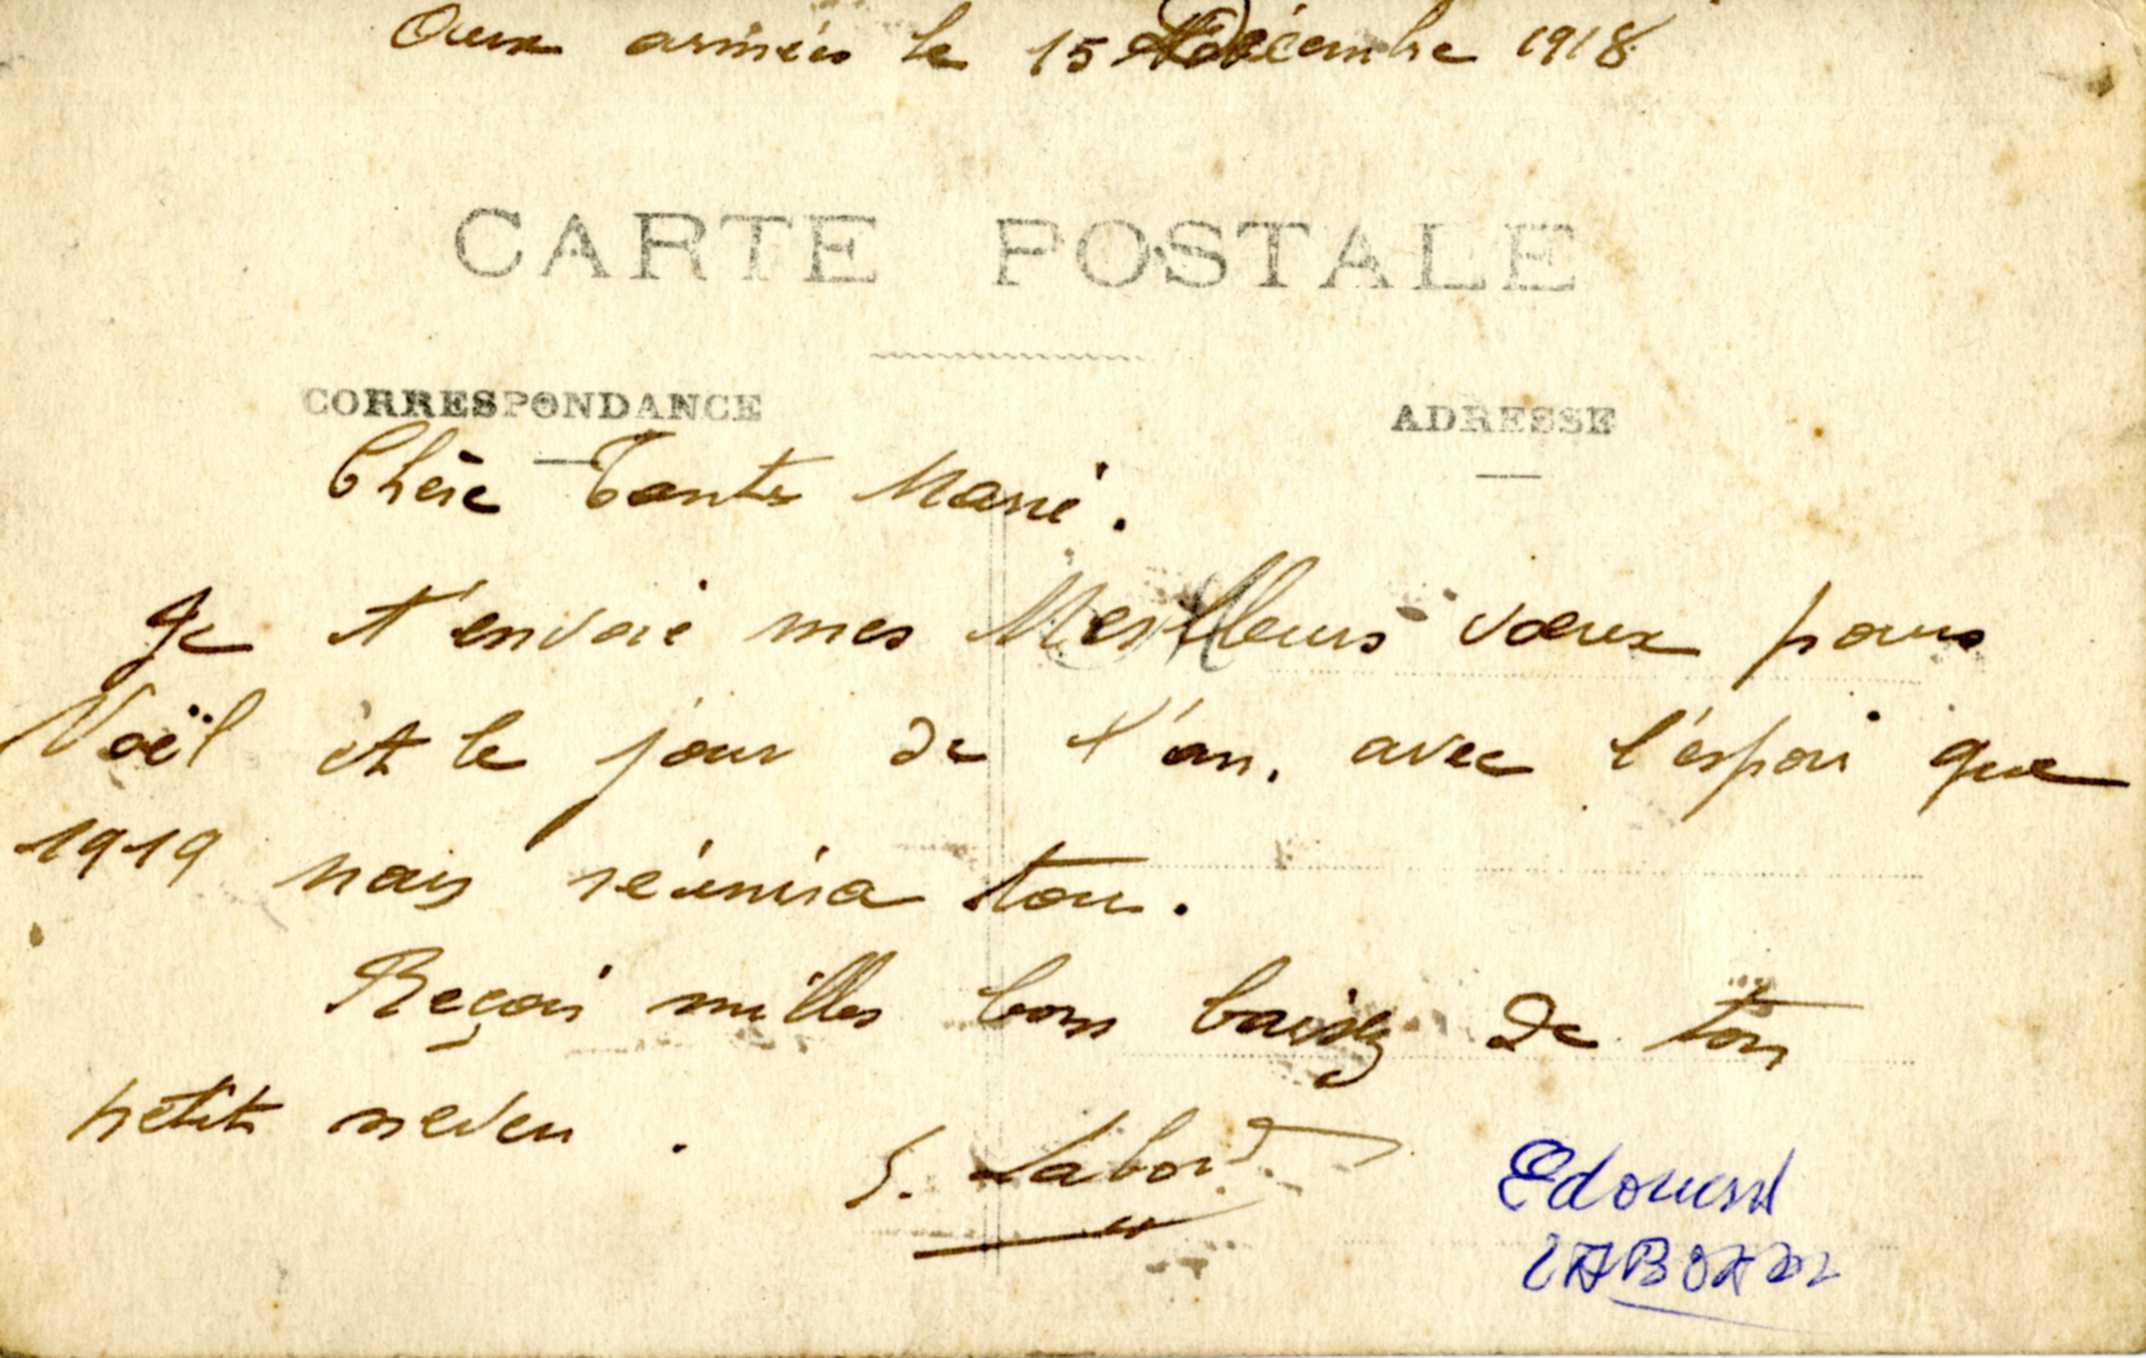 Aux armées le 15 Décembre 1918
CARTE POSTALE
CORRESPONDANCE
ADRESSE
Chère Tante Marie.
Je t'envoie mes Meilleurs vœux pour
Noël et le jour de l'an. avec l'espoir que
1919 nous réunira tous.
Reçois milles bons baisers de ton
petit neveu.
E. Labord
Edouard